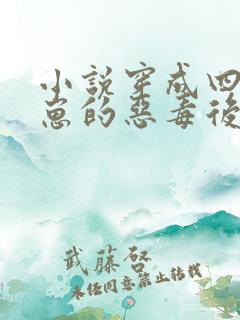 小說穿成四
崽的惡毒後
武藤啓
未经同意禁止转载